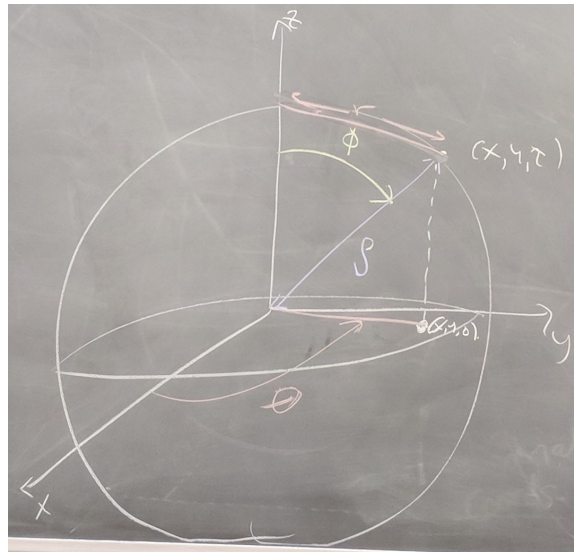 z
r
φ
(x,y,z)
ρ
(x,y,0)
y
θ
x